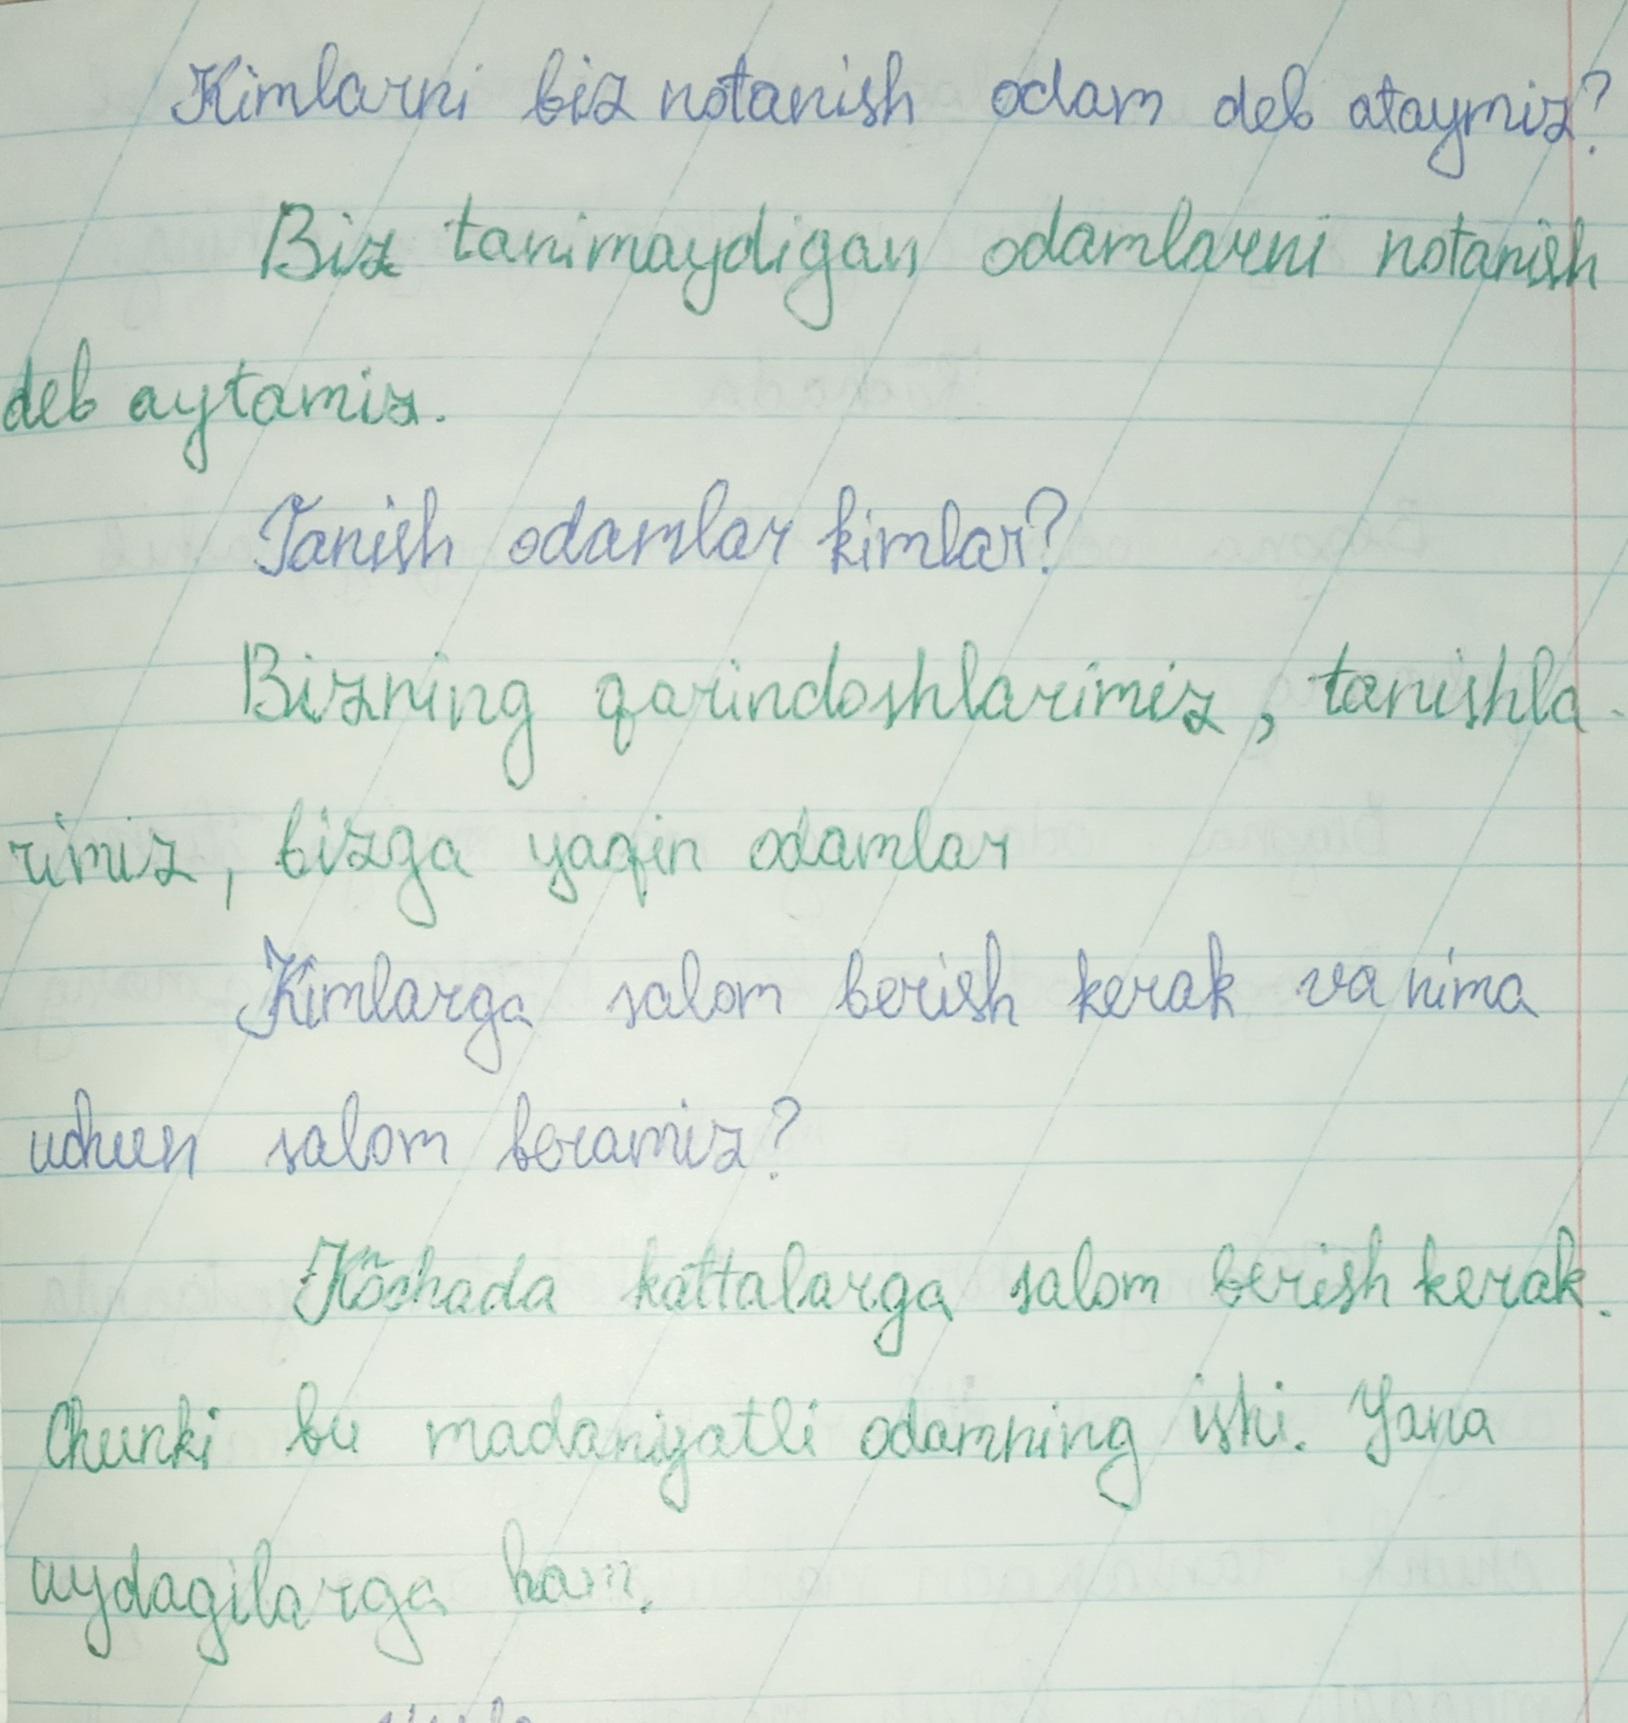 Kimlarni biz notanish odam deb ataymiz?
Biz tanimaydigan odamlarni notanish
deb aytamiz.
Tanish odamlar kimlar?
Bizning qarindoshlarimiz, tanishla-
rimiz, bizga yaqin odamlar
Kimlarga salom berish kerak va nima
uchun salom beramiz?
Kõchada kattalarga salom berish kerak.
Chunki bu madaniyatli odamning ishi. Yana
uydagilarga ham.